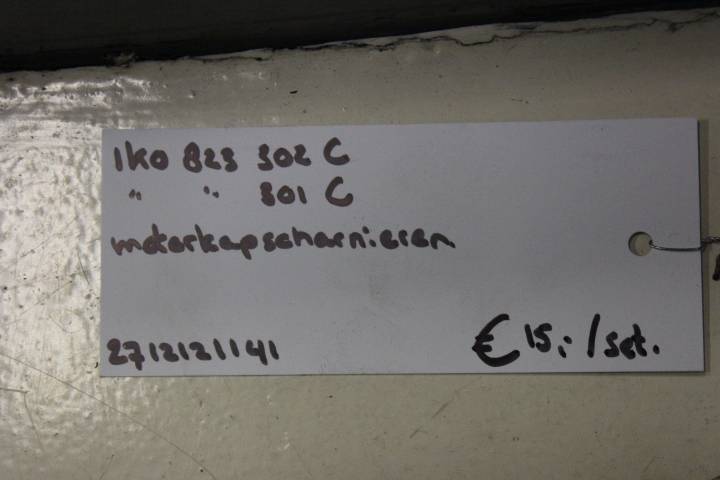 1K0 823 302 C
" " 301 C
motorkapscharnieren
27121211141
€ 15,- / set.